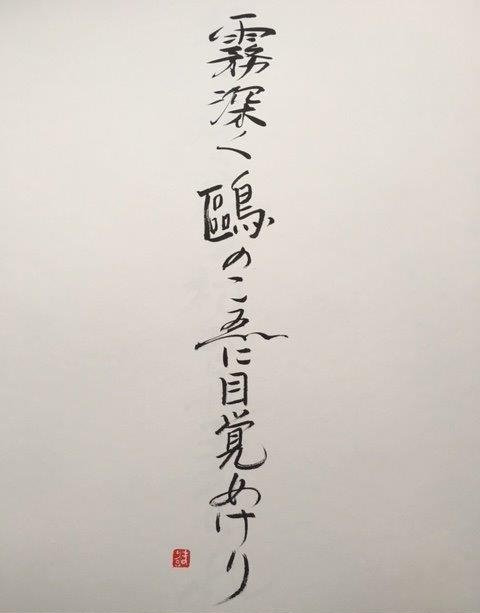 霧深く鷗のこゑに目覚めけり